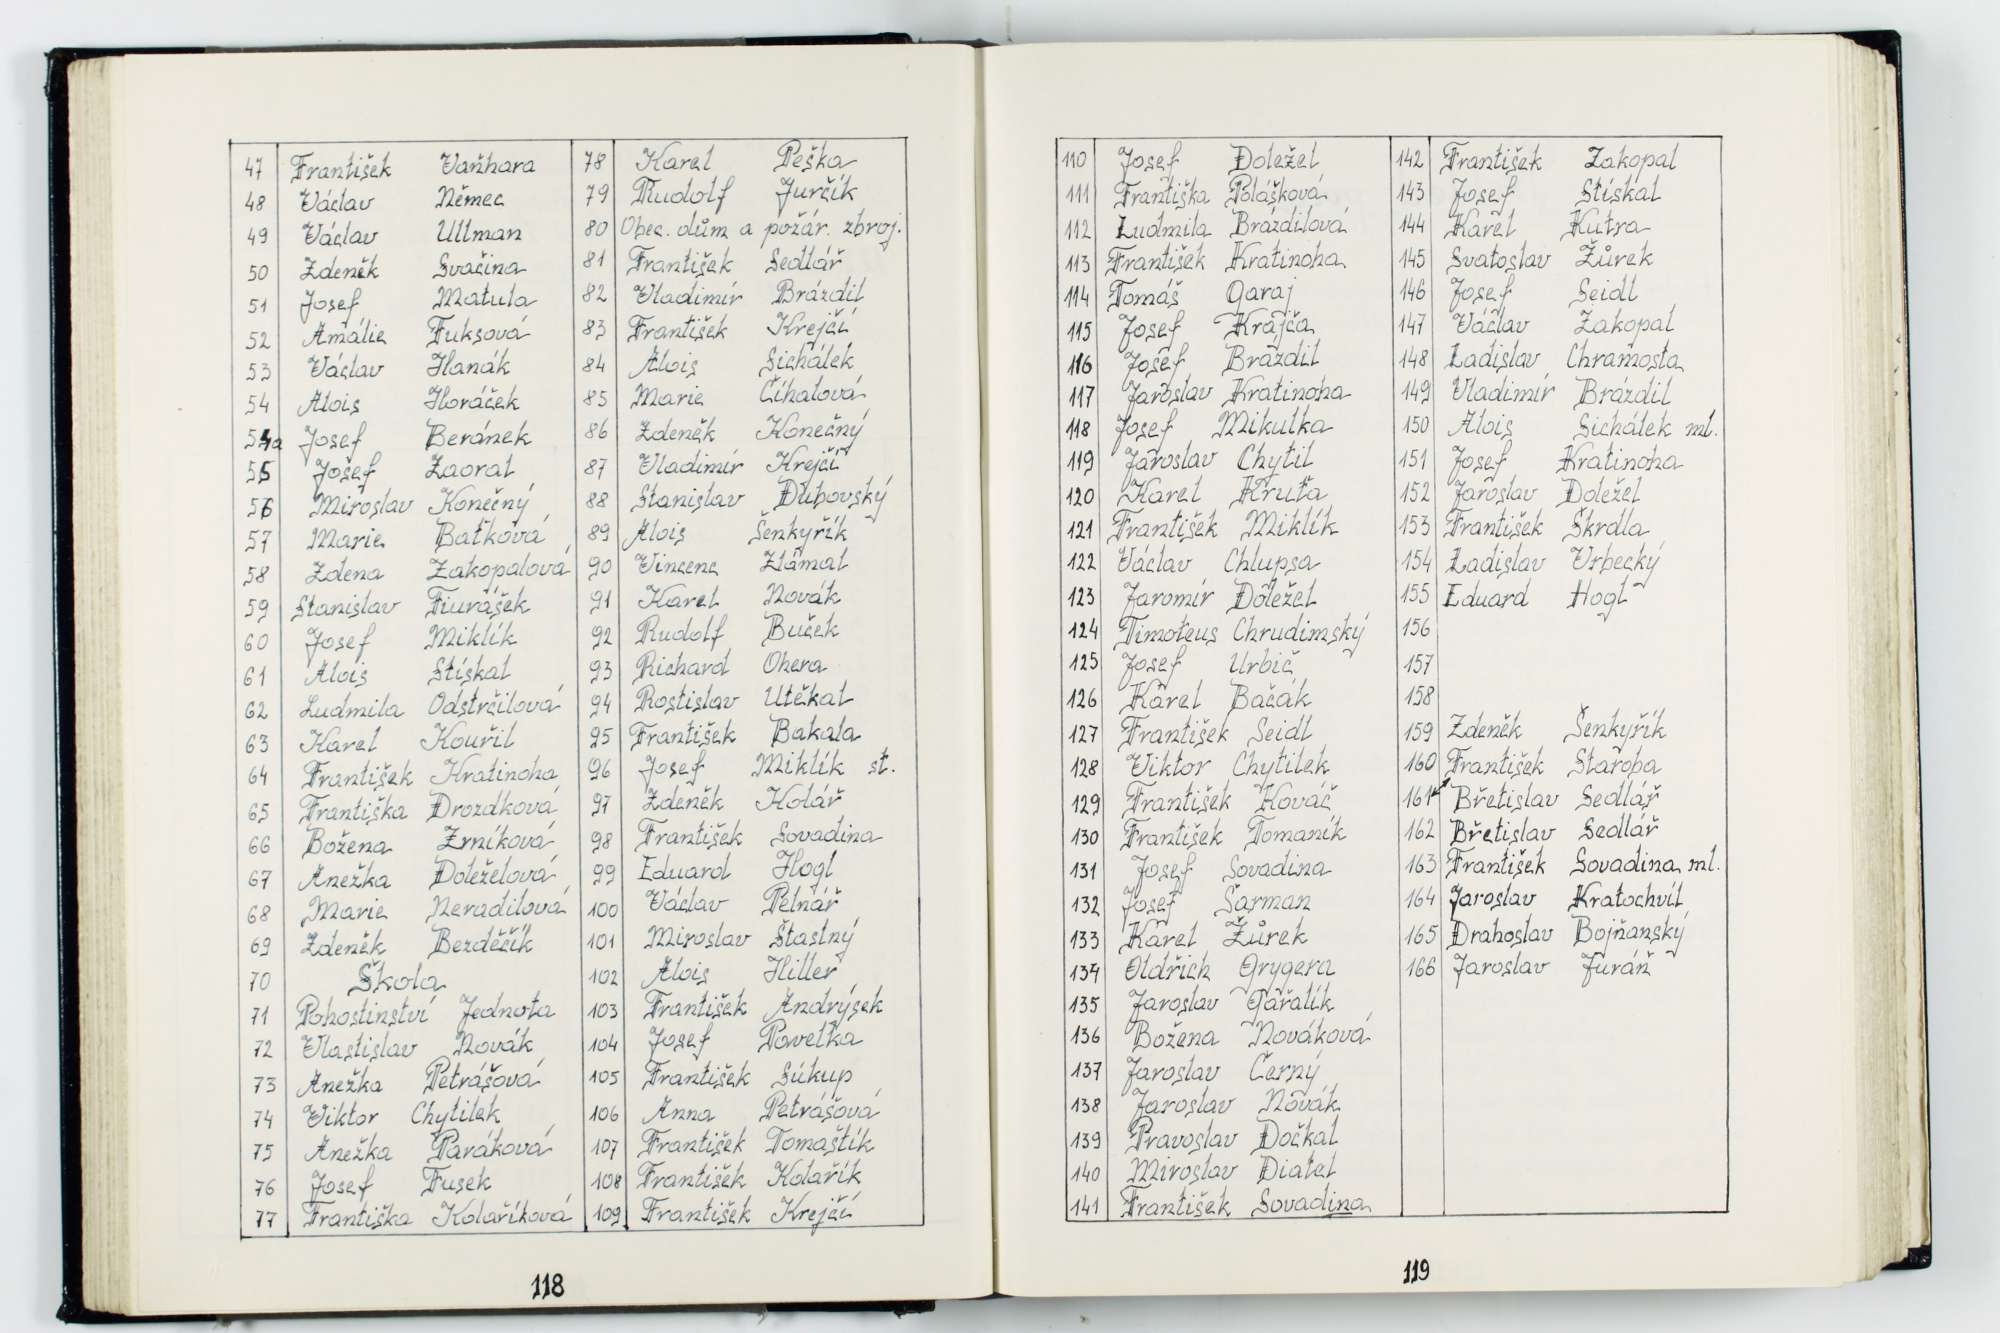 47 František Vaňhara
48 Václav Němec
49 Václav Ullman
50 Zdeněk Svačina
51 Josef Matula
52 Amálie Fuksová
53 Václav Hanák
54 Alois Horáček
54a Josef Beránek
55 Josef Zaoral
56 Miroslav Konečný
57 Marie Baťková
58 Zdena Zakopalová
59 Stanislav Fiurášek
60 Josef Miklík
61 Alois Stískal
62 Ludmila Odstrčilová
63 Karel Kouřil
64 František Kratinoha
65 Františka Drozdková
66 Božena Zrníková
67 Anežka Doleželová
68 Marie Neradilová
69 Zdeněk Bezděčík
70 Škola
71 Pohostinství Jednota
72 Vlastislav Novák
73 Anežka Petrášová
74 Viktor Chytilek
75 Anežka Paráková
76 Josef Fusek
77 Františka Kolaříková
78 Karel Peška
79 Rudolf Jurčík
80 Obec. dům a požár. zbroj.
81 František Sedlář
82 Vladimír Brázdil
83 František Krejčí
84 Alois Sichálek
85 Marie Číhalová
86 Zdeněk Konečný
87 Vladimír Krejčí
88 Stanislav Dubovský
89 Alois Šenkyřík
90 Vincenc Zlámal
91 Karel Novák
92 Rudolf Buček
93 Richard Ohera
94 Rostislav Utěkal
95 František Bakala
96 Josef Miklík st.
97 Zdeněk Kolář
98 František Sovadina
99 Eduard Hogl
100 Václav Pelnář
101 Miroslav Šťastný
102 Alois Hiller
103 František Andrýsek
104 Josef Pavelka
105 František Súkup
106 Anna Petrášová
107 František Tomaštík
108 František Kolařík
109 František Krejčí
118
110 Josef Doležel
111 Františka Polášková
112 Ludmila Brázdilová
113 František Kratinoha
114 Tomáš Garaj
115 Josef Krajča
116 Josef Brázdil
117 Jaroslav Kratinoha
118 Josef Mikulka
119 Jaroslav Chytil
120 Karel Kruťa
121 František Miklík
122 Václav Chlupsa
123 Jaromír Doležel
124 Timoteus Chrudimský
125 Josef Urbič
126 Karel Bačák
127 František Seidl
128 Viktor Chytilek
129 František Kováč
130 František Tomaník
131 Josef Sovadina
132 Josef Šarman
133 Karel Žůrek
134 Oldřich Grygera
135 Jaroslav Gařalík
136 Božena Nováková
137 Jaroslav Černý
138 Jaroslav Novák
139 Pravoslav Dočkal
140 Miroslav Diatel
141 František Sovadina
142 František Zakopal
143 Josef Stískal
144 Karel Kutra
145 Svatoslav Žůrek
146 Josef Seidl
147 Václav Zakopal
148 Ladislav Chramosta
149 Vladimír Brázdil
150 Alois Sichálek ml.
151 Josef Kratinoha
152 Jaroslav Doležel
153 František Škrdla
154 Ladislav Vrbecký
155 Eduard Hogl
156
157
158
159 Zdeněk Šenkyřík
160 František Staroba
161 Břetislav Sedlář
162 Břetislav Sedlář
163 František Sovadina ml.
164 Jaroslav Kratochvíl
165 Drahoslav Bojňanský
166 Jaroslav Juráň
119